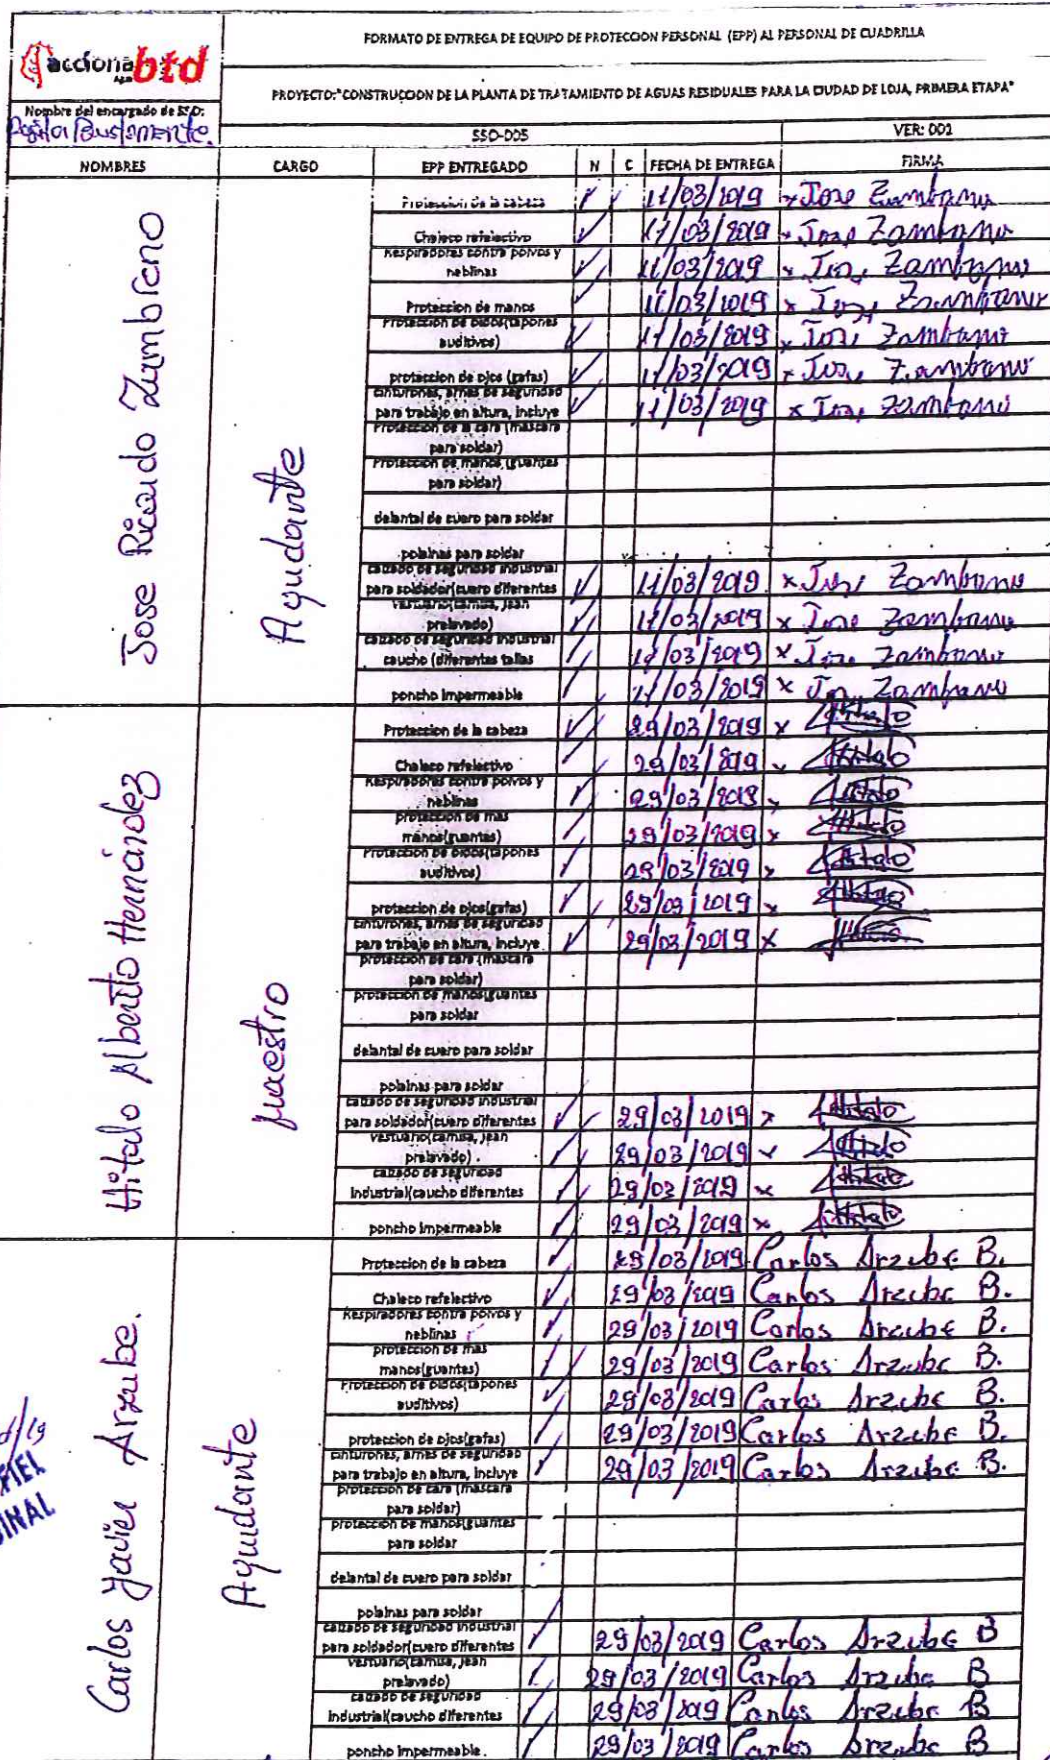 FORMATO DE ENTREGA DE EQUIPO DE PROTECCION PERSONAL (EPP) AL PERSONAL DE CUADRILLA
acciona btd
Agua
PROYECTO:"CONSTRUCCION DE LA PLANTA DE TRATAMIENTO DE AGUAS RESIDUALES PARA LA CIUDAD DE LOJA, PRIMERA ETAPA"
Nombre del encargado de SSO:
Bustamente.
SSO-005 VER: 001
NOMBRES CARGO EPP ENTREGADO N C FECHA DE ENTREGA FIRMA
Jose Ricardo Zambrano
Ayudante
Proteccion de la cabeza ✓ 11/03/2019 x Jose Zambrano
Chaleco refelectivo ✓ 11/03/2019 x Jose Zambrano
Respiradores contra polvos y
neblinas ✓ 11/03/2019 x Jose Zambrano
Proteccion de manos ✓ 11/03/2019 x Jose Zambrano
Proteccion de oidos(tapones
auditivos) ✓ 11/03/2019 x Jose Zambrano
proteccion de ojos (gafas) ✓ 11/03/2019 x Jose Zambrano
cinturones, arnes de seguridad
para trabajo en altura, incluye ✓ 11/03/2019 x Jose Zambrano
Proteccion de la cara (mascara
para soldar)
Proteccion de manos (guantes
para soldar)
delantal de cuero para soldar
polainas para soldar
calzado de seguridad industrial
para soldador(cuero diferentes ✓ 11/03/2019 x Jose Zambrano
vestuario(camisa, jean
prelavado) ✓ 11/03/2019 x Jose Zambrano
calzado de seguridad industrial
caucho (diferentes tallas ✓ 11/03/2019 x Jose Zambrano
poncho impermeable ✓ 11/03/2019 x Jose Zambrano
Hitalo Alberto Hernández
Maestro
Proteccion de la cabeza ✓ 29/03/2019 x Hitalo
Chaleco refelectivo ✓ 29/03/2019 x Hitalo
Respiradores contra polvos y
neblinas ✓ 29/03/2019 x Hitalo
proteccion de mas
manos(guantes) ✓ 29/03/2019 x Hitalo
Proteccion de oidos(tapones
auditivos) ✓ 29/03/2019 x Hitalo
proteccion de ojos(gafas) ✓ 29/03/2019 x Hitalo
cinturones, arnes de seguridad
para trabajo en altura, incluye ✓ 29/03/2019 x Hitalo
proteccion de cara (mascara
para soldar)
proteccion de manos(guantes
para soldar
delantal de cuero para soldar
polainas para soldar
calzado de seguridad industrial
para soldador(cuero diferentes ✓ 29/03/2019 x Hitalo
vestuario(camisa, jean
prelavado) . ✓ 29/03/2019 x Hitalo
calzado de seguridad
industrial(caucho diferentes ✓ 29/03/2019 x Hitalo
poncho impermeable ✓ 29/03/2019 x Hitalo
Carlos Javier Arzube.
Ayudante
Proteccion de la cabeza ✓ 29/03/2019 Carlos Arzube B.
Chaleco refelectivo ✓ 29/03/2019 Carlos Arzube B.
Respiradores contra polvos y
neblinas ✓ 29/03/2019 Carlos Arzube B.
proteccion de mas
manos(guantes) ✓ 29/03/2019 Carlos Arzube B.
Proteccion de oidos(tapones
auditivos) ✓ 29/03/2019 Carlos Arzube B.
proteccion de ojos(gafas) ✓ 29/03/2019 Carlos Arzube B.
cinturones, arnes de seguridad
para trabajo en altura, incluye ✓ 29/03/2019 Carlos Arzube B.
proteccion de cara (mascara
para soldar)
proteccion de manos(guantes
para soldar
delantal de cuero para soldar
polainas para soldar
calzado de seguridad industrial
para soldador(cuero diferentes ✓ 29/03/2019 Carlos Arzube B
vestuario(camisa, jean
prelavado) ✓ 29/03/2019 Carlos Arzube B
calzado de seguridad
industrial(caucho diferentes ✓ 29/03/2019 Carlos Arzube B
poncho impermeable. ✓ 29/03/2019 Carlos Arzube B